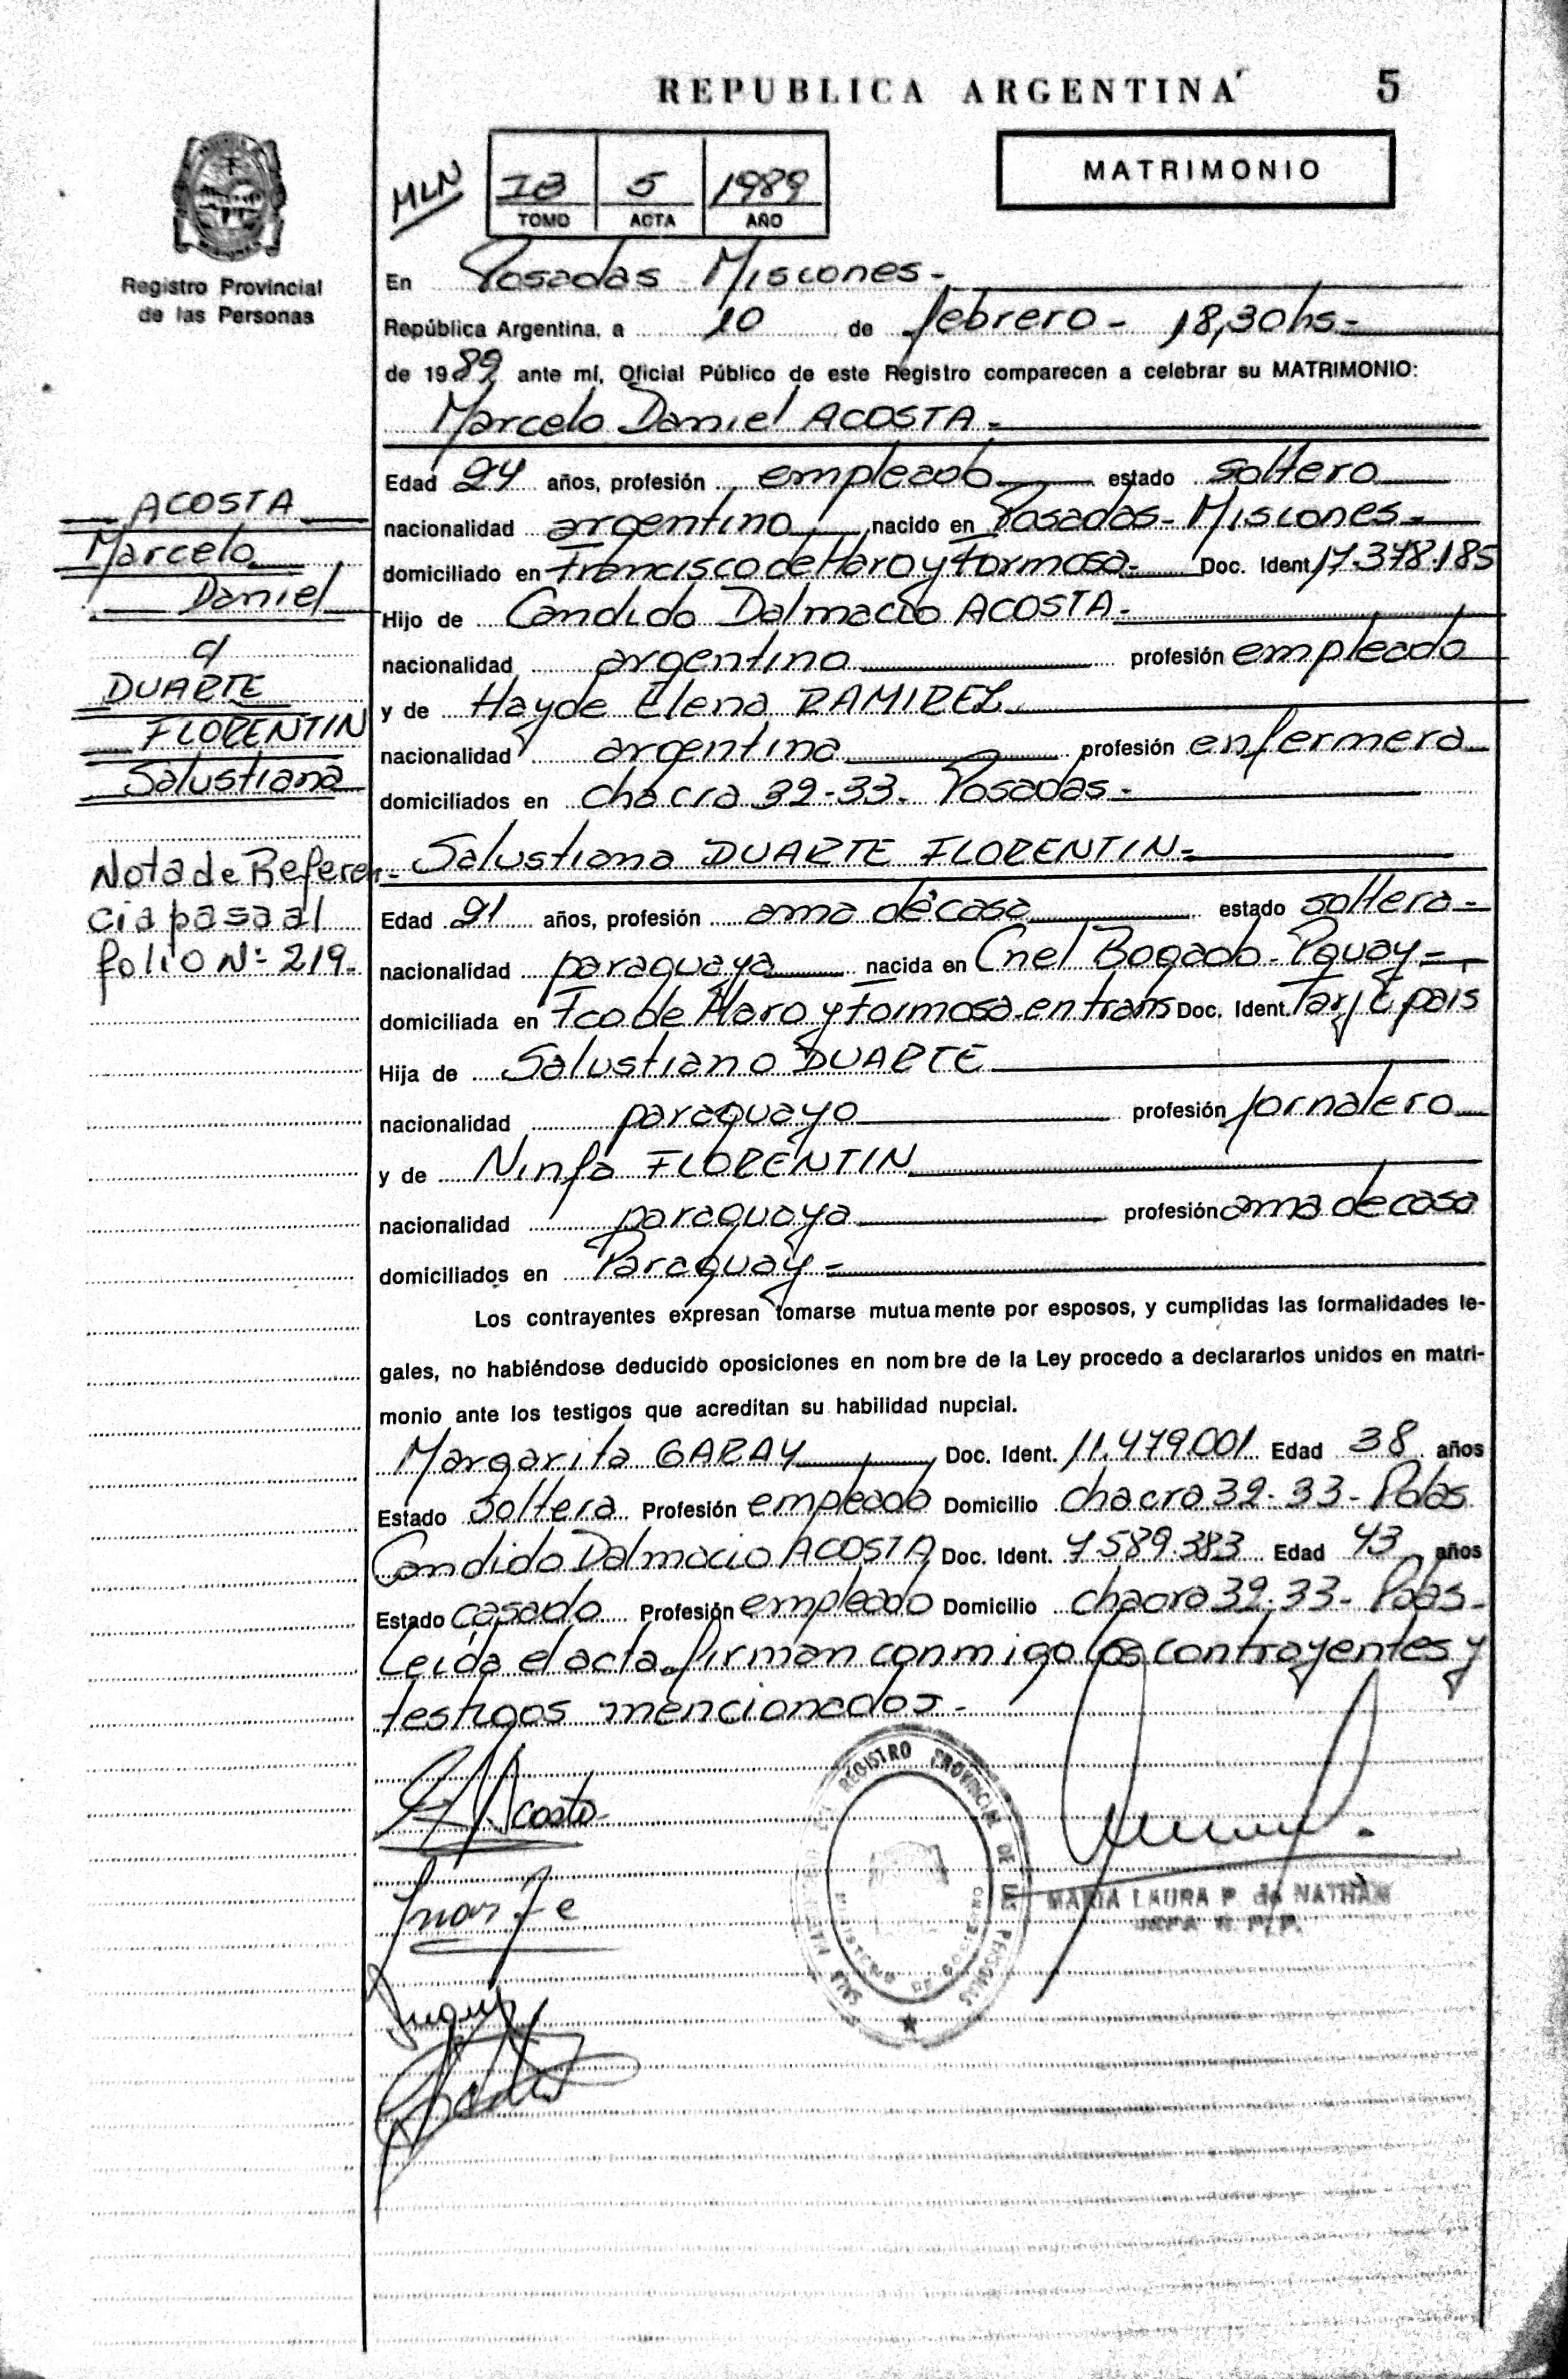 REPUBLICA ARGENTINA 5
MATRIMONIO
MLN
IB 5 1989
TOMO ACTA AÑO
Registro Provincial
de las Personas
En Posadas Misiones-
República Argentina, a 10 de febrero - 18,30 hs-
de 1989 ante mí, Oficial Público de este Registro comparecen a celebrar su MATRIMONIO:
Marcelo Daniel ACOSTA-
Edad 24 años, profesión empleado estado soltero
nacionalidad argentino nacido en Posadas- Misiones-
domiciliado en Francisco de Haro y Formosa- Doc. Ident. 17.378.185
Hijo de Candido Dalmacio ACOSTA-
nacionalidad argentino profesión empleado
y de Hayde Elena RAMIREZ
nacionalidad argentina profesión enfermera
domiciliados en chacra 32-33- Posadas-
Salustiana DUARTE FLORENTIN-
Edad 21 años, profesión ama de casa estado soltera-
nacionalidad paraguaya nacida en Cnel Bogado- Pguay-
domiciliada en Fco de Haro y Formosa-en trans Doc. Ident. Tarj C pais
Hija de Salustiano DUARTE
nacionalidad paraguayo profesión jornalero
y de Ninfa FLORENTIN
nacionalidad paraguaya profesión ama de casa
domiciliados en Paraguay-
Los contrayentes expresan tomarse mutuamente por esposos, y cumplidas las formalidades le-
gales, no habiéndose deducido oposiciones en nombre de la Ley procedo a declararlos unidos en matri-
monio ante los testigos que acreditan su habilidad nupcial.
Margarita GARAY Doc. Ident. 11.479.001 Edad 38 años
Estado Soltera Profesión empleada Domicilio chacra 32-33- Pdas
Candido Dalmacio ACOSTA Doc. Ident. 7.589.383 Edad 43 años
Estado casado Profesión empleado Domicilio chacra 32-33- Pdas-
Leída el acta firman conmigo los contrayentes y
testigos mencionados-
ACOSTA
Marcelo
Daniel
c/
DUARTE
FLORENTIN
Salustiana
Nota de Referen-
cia pasa al
folio Nº 219-
Acosta
REGISTRO PROVINCIAL DE LAS PERSONAS
MINISTERIO DE GOBIERNO
MARIA LAURA P. de NATHAN
JEFA R. P. P.